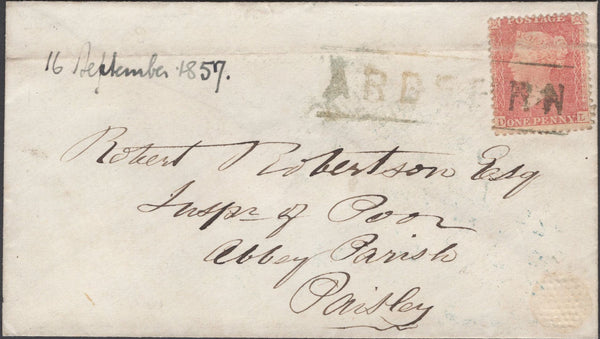 16 September 1857.
POSTAGE
ARDFERN
D ONE PENNY L
Robert Robertson Esq
Inspr of Poor
Abbey Parish
Paisley